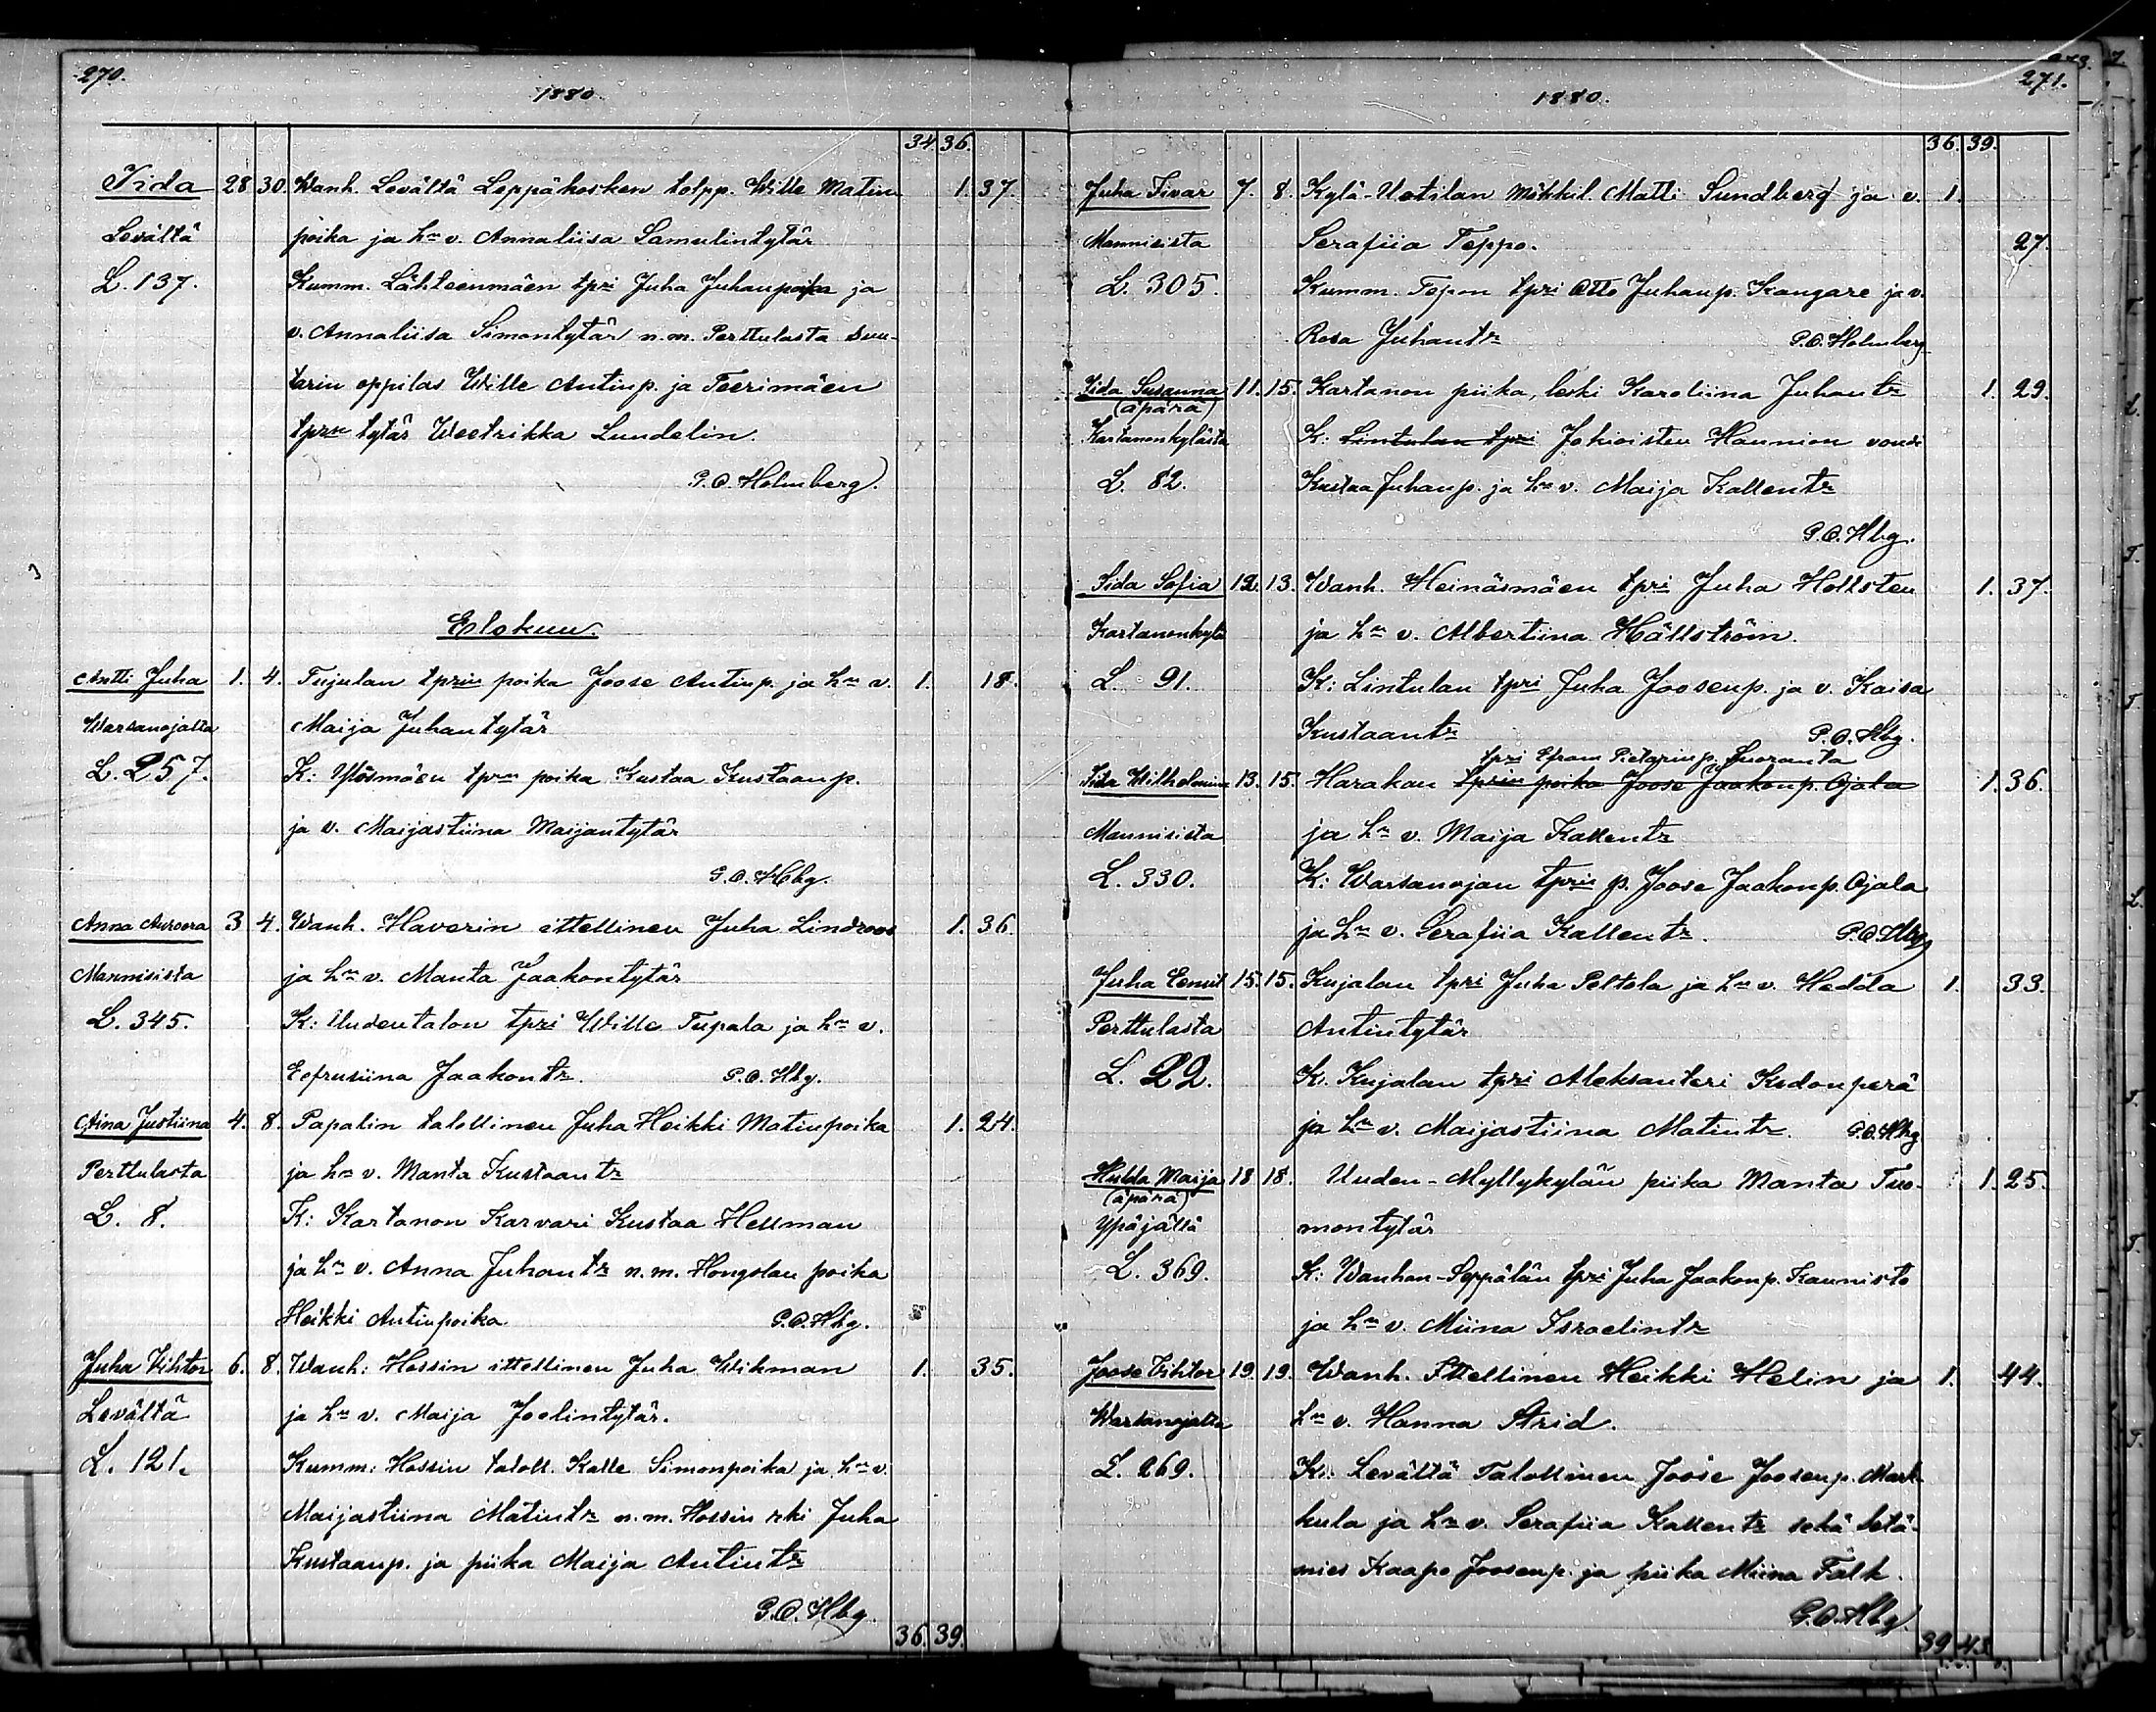 270.
1880.
34 36.
Iida 28 30. Wanh. Levältä Leppäkosken tolpp. Wille Matin 1. 37.
Levältä poika ja hn v. Annaliisa Samulintytär
L. 137. Kumm. Lähteenmäen tpri Juha Juhanpoika ja
v. Annaliisa Simontytär n.m. Perttulasta suu-
tarin oppilas Wille Antinp. ja Teerimäen
tprin tytär Weetrikka Lundelin.
P.O. Holmberg.
Elokuu.
Antti Juha 1. 4. Tujulan tprin poika Joose Antinp. ja hn v. 1. 18.
Warsanojalta Maija Juhantytär
L. 257. K: Yläsmäen tprn poika Kustaa Kustaanp.
ja v. Maijastiina Maijantytär
P.O. Hbg.
Anna Auroora 3 4. Wanh. Haverin ittellinen Juha Lindroos 1. 36.
Mannisista ja hn v. Manta Jaakontytär
L. 345. K: Uudentalon tpri Wille Tupala ja hn v.
Eefrusiina Jaakontr. P.O. Hbg.
Aina Justiina 4. 8. Papalin talollinen Juha Heikki Matinpoika 1. 24.
Perttulasta ja hn v. Manta Kustaantr
L. 8. K: Kartanon Karvari Kustaa Hellman
ja hn v. Anna Juhantr n.m. Hongolan poika
Heikki Antinpoika P.O. Hbg.
Juha Vihtor 6. 8. Wanh: Hossin ittellinen Juha Wikman 1. 35.
Levältä ja hn v. Maija Joelintytär.
L. 121. Kumm: Hossin taloll. Kalle Simonpoika ja hn v.
Maijastiina Matintr n.m. Hossin rki Juha
Kustaanp. ja piika Maija Antintr
P.O. Hbg.
36. 39.
273.
271.
1880.
36. 39.
Juha Iivar 7. 8. Kylä-Uotilan mökkil. Matti Sundberg ja v. 1.
Mannisista Serafiia Teppo. 27.
L. 305. Kumm. Tepon tpri Otto Juhanp. Kangare ja v.
Rosa Juhantr P.O. Holmberg
Iida Susanna 11. 15. Kartanon piika, leski Karoliina Juhantr 1. 29.
(äpärä)
Kartanonkylästä K: Lintulan tpri Jokioisten Haunion vouti
L. 82. Kustaa Juhanp. ja hn v. Maija Kallentr
P.O. Hbg.
Iida Sofia 12. 13. Wanh. Heinäsmäen tpri Juha Hollsten 1. 37.
Kartanonkylä ja hn v. Albertiina Hällström.
L. 91. K: Lintulan tpri Juha Joosenp. ja v. Kaisa
Kustaantr P.O. Hbg.
tpri Efram Pietarinp. Suoranta
Iida Wilhelmina 13. 15. Harakan tprin poika Joose Jaakonp. Ojala 1. 36.
Mannisista ja hn v. Maija Kallentr
L. 330. K: Warsanojan tprin p. Joose Jaakonp. Ojala
ja hn v. Serafiia Kallentr. P.O. Hbg
Juha Eemil 15. 15. Kujalan tpri Juha Peltola ja hn v. Hedda 1. 33.
Perttulasta Antintytär
L. 22. K. Kujalan tpri Aleksanteri Kedonperä
ja hn v. Maijastiina Matintr. P.O. Hbg
Hulda Maija 18 18. Uuden-Myllykylän piika Manta Tuo- 1. 25.
(äpärä)
Ypäjältä montytär
L. 369. K: Wanhan-Seppälän tpri Juha Jaakonp. Kaunisto
ja hn v. Miina Israelintr
Joose Vihtor 19. 19. Wanh. Ittellinen Heikki Helin ja 1. 44.
Warsanojalta hn v. Hanna Strid.
L. 269. K: Levältä Talollinen Joose Joosenp. Mark-
kula ja hn v. Serafiia Kallentr sekä
mies Kaapo Joosenp. ja piika Miina Falk.
P.O. Hbg.
39. 43.